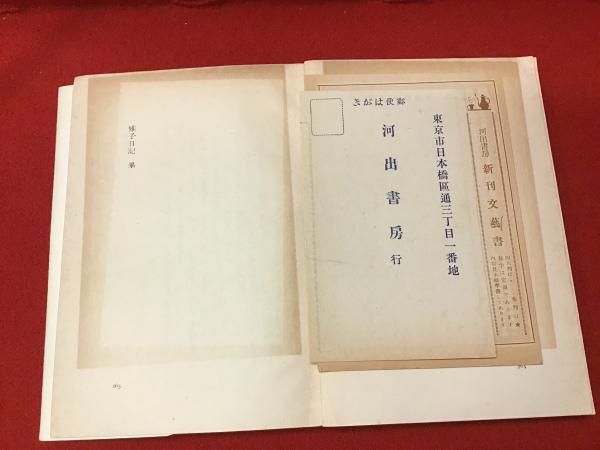 雉子日記 畢
郵便はがき
東京市日本橋區通三丁目一番地
河出書房 行
河出書房
新刊文藝書